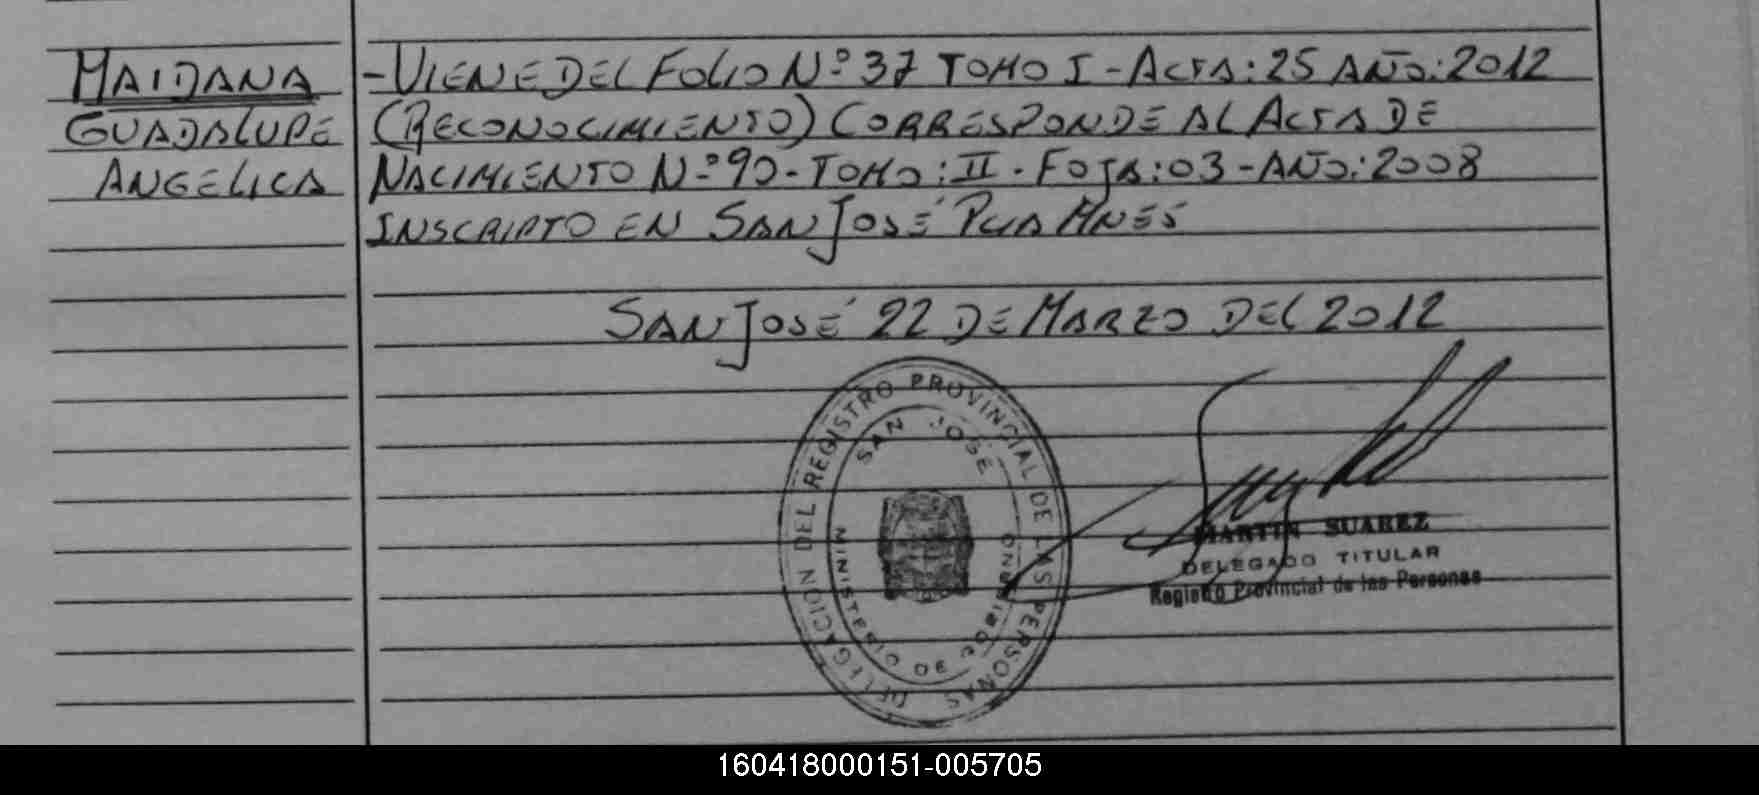 MAIDANA
GUADALUPE
ANGELICA
-VIENE DEL FOLIO N·º 37 TOMO I - ACTA: 25 AÑO: 2012
(RECONOCIMIENTO) CORRESPONDE AL ACTA DE
NACIMIENTO N·º 90 - TOMO: II · FOJA: 03 - AÑO: 2008
INSCRIPTO EN SAN JOSÉ PCIA MNES
SAN JOSÉ 22 DE MARZO DEL 2012
DELEGACION DEL REGISTRO PROVINCIAL DE LAS PERSONAS
SAN JOSE
MINISTERIO DE GOBIERNO
MARTIN SUAREZ
DELEGADO TITULAR
Registro Provincial de las Personas
160418000151-005705